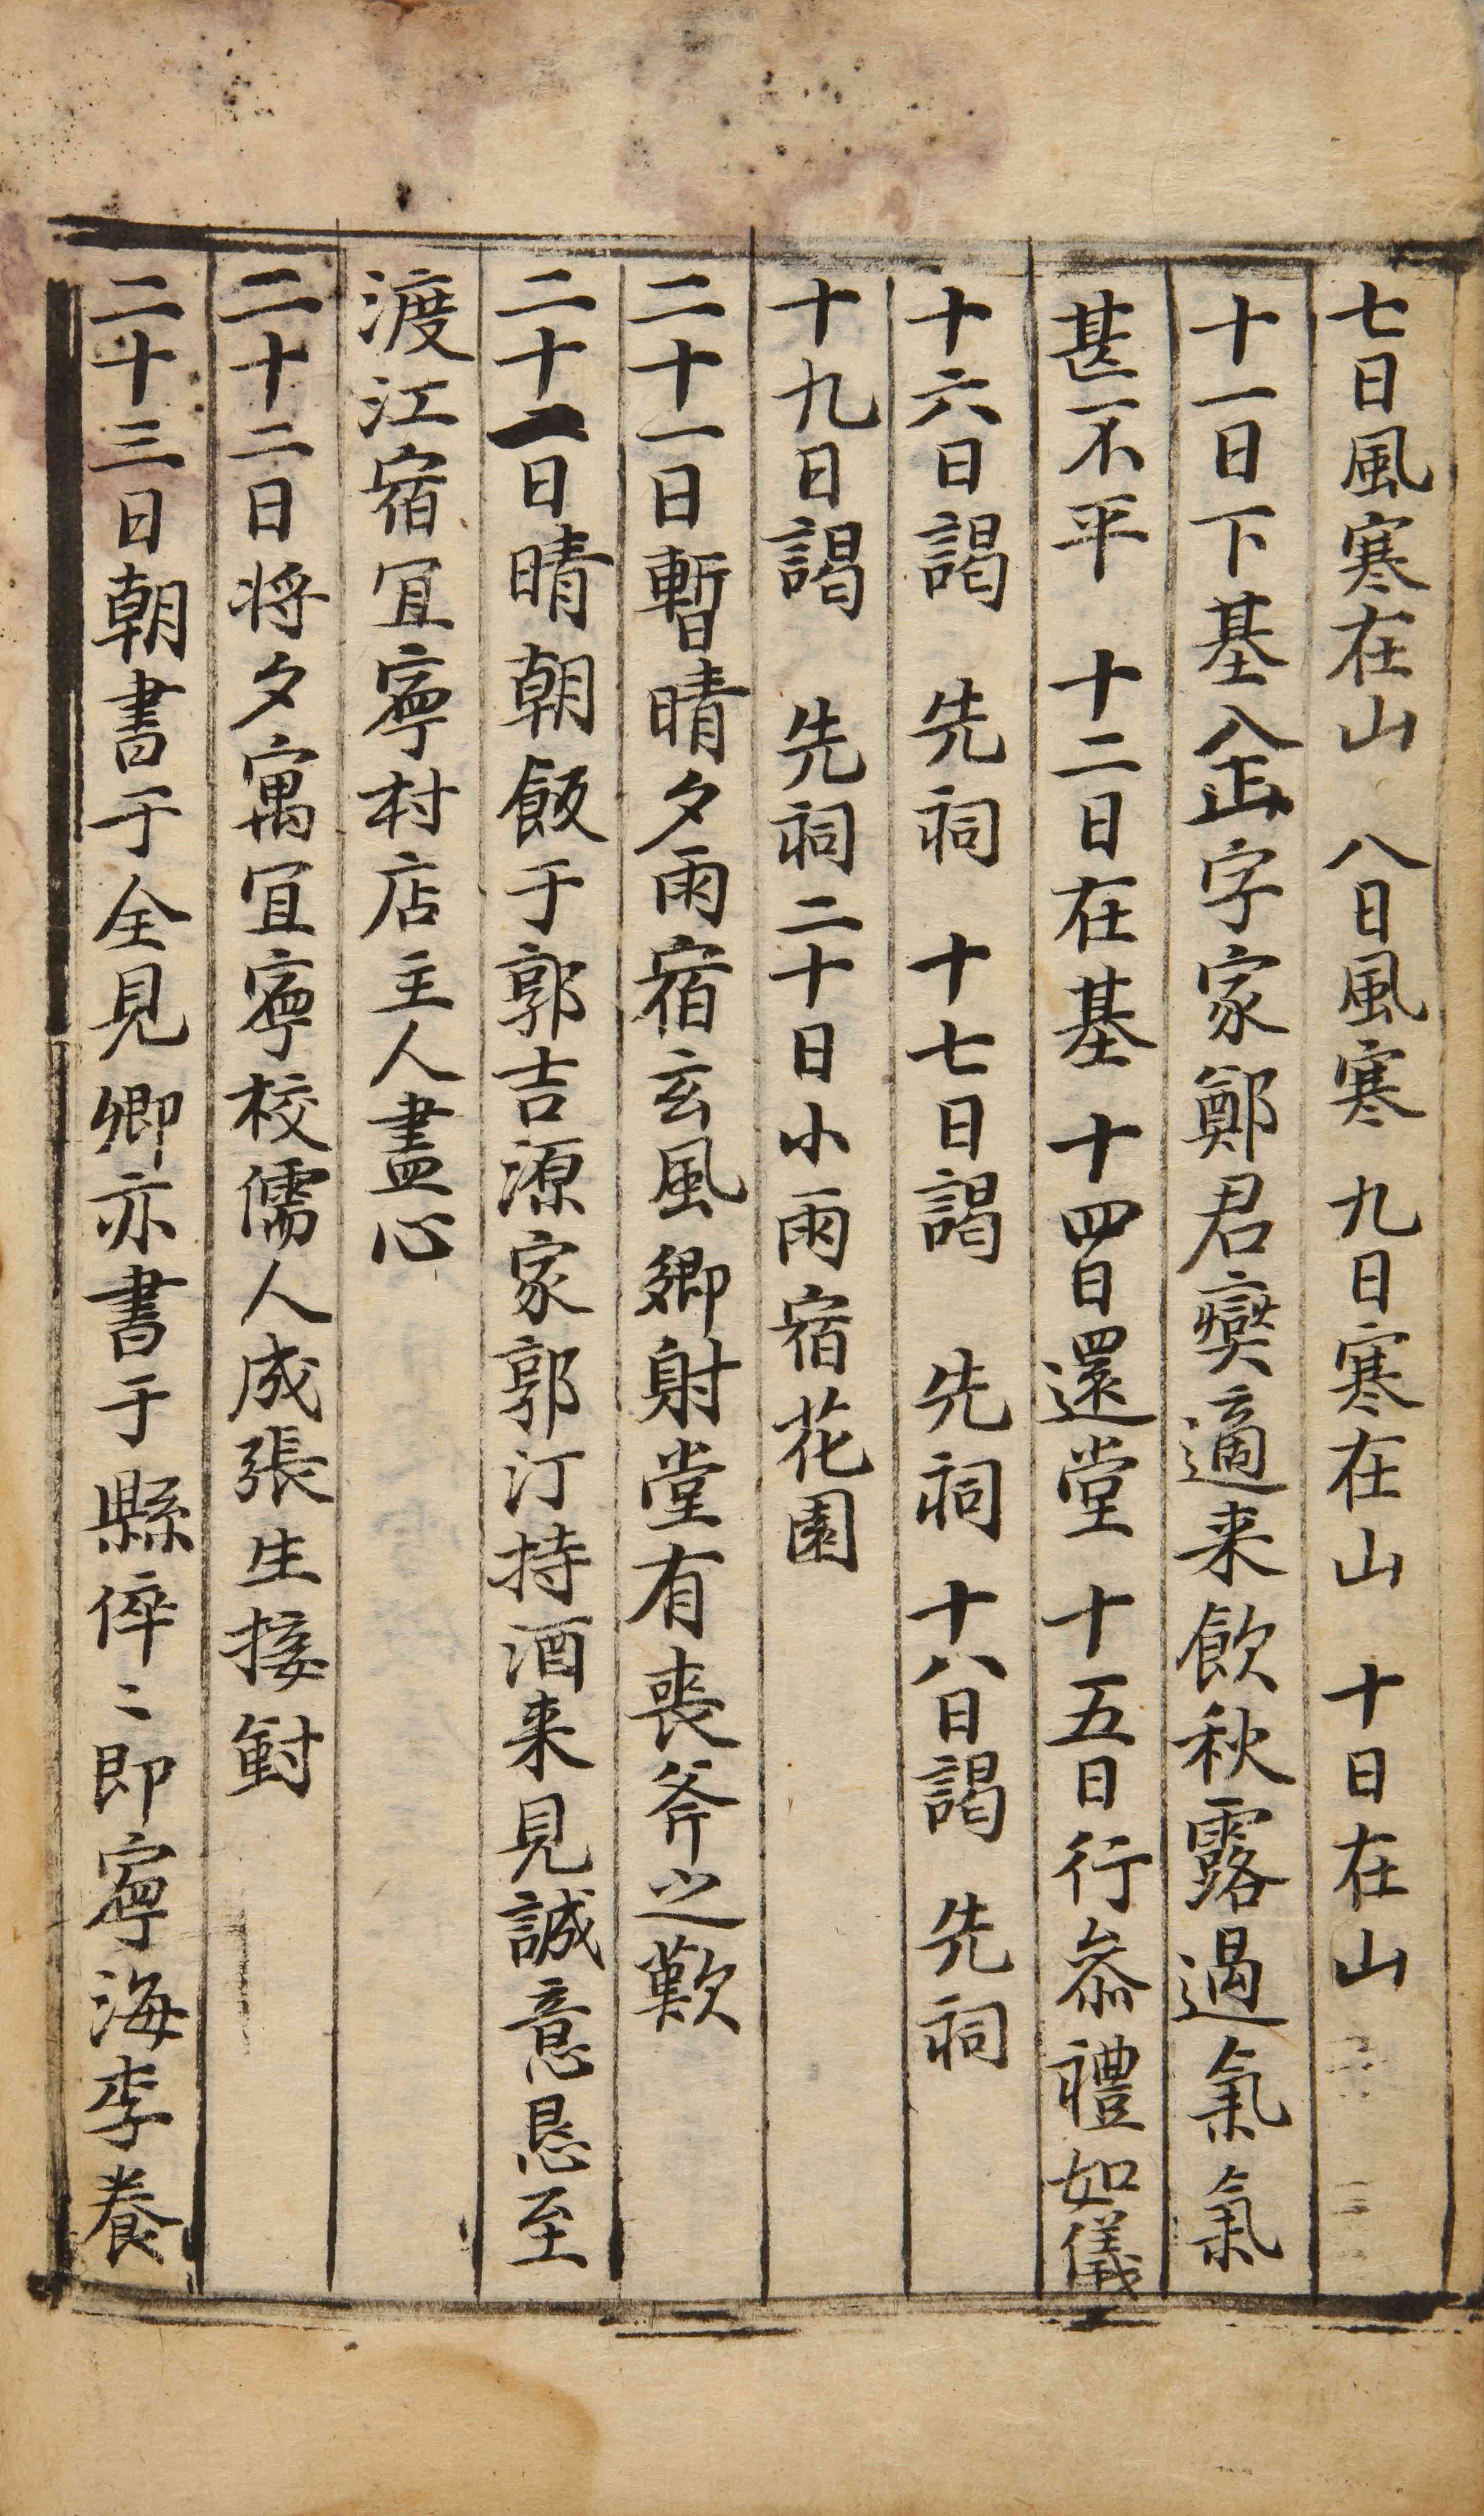 七日風寒在山 八日風寒 九日寒在山 十日在山
十一日下基入正字家鄭君奭適来飲秋露遏氣氣
甚不平 十二日在基 十四日還堂 十五日行叅禮如儀
十六日謁 先祠 十七日謁 先祠 十八日謁 先祠
十九日謁 先祠二十日小雨宿花園
二十一日暫晴夕雨宿玄風鄉射堂有丧斧之歎
二十一日晴朝飯于郭吉源家郭汀持酒来見誠意恳至
渡江宿冝寧村店主人盡心
二十二日将夕寓冝寧校儒人成張生接對
二十三日朝書于全見卿亦書于縣倅〻即寧海李養